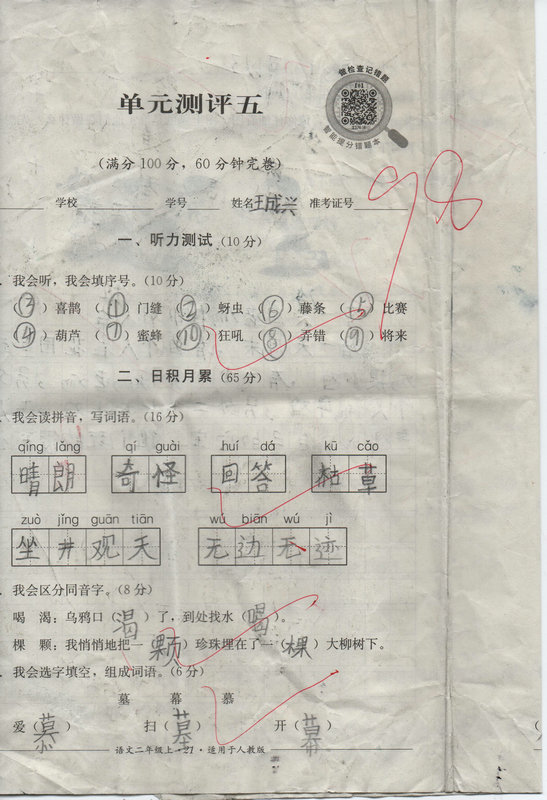 做检查记错题
智能提分错题本
单元测评五
(满分100分,60分钟完卷)
98
学校 学号 姓名王成兴 准考证号
一、听力测试(10分)
我会听,我会填序号。(10分)
(③)喜鹊 (①)门缝 (②)蚜虫 (⑥)藤条 (⑤)比赛
(④)葫芦 (⑦)蜜蜂 (⑩)狂吼 (⑧)弄错 (⑨)将来
二、日积月累(65分)
我会读拼音,写词语。(16分)
qíng lǎng qí guài huí dá kū cǎo
晴朗 奇怪 回答 枯草
zuò jǐng guān tiān wú biān wú jì
坐井观天 无边无迹
我会区分同音字。(8分)
喝 渴:乌鸦口(渴)了,到处找水(喝)。
棵 颗:我悄悄地把一(颗)珍珠埋在了一(棵)大柳树下。
我会选字填空,组成词语。(6分)
墓 幕 慕
爱(慕) 扫(墓) 开(幕)
语文二年级上·21·适用于人教版